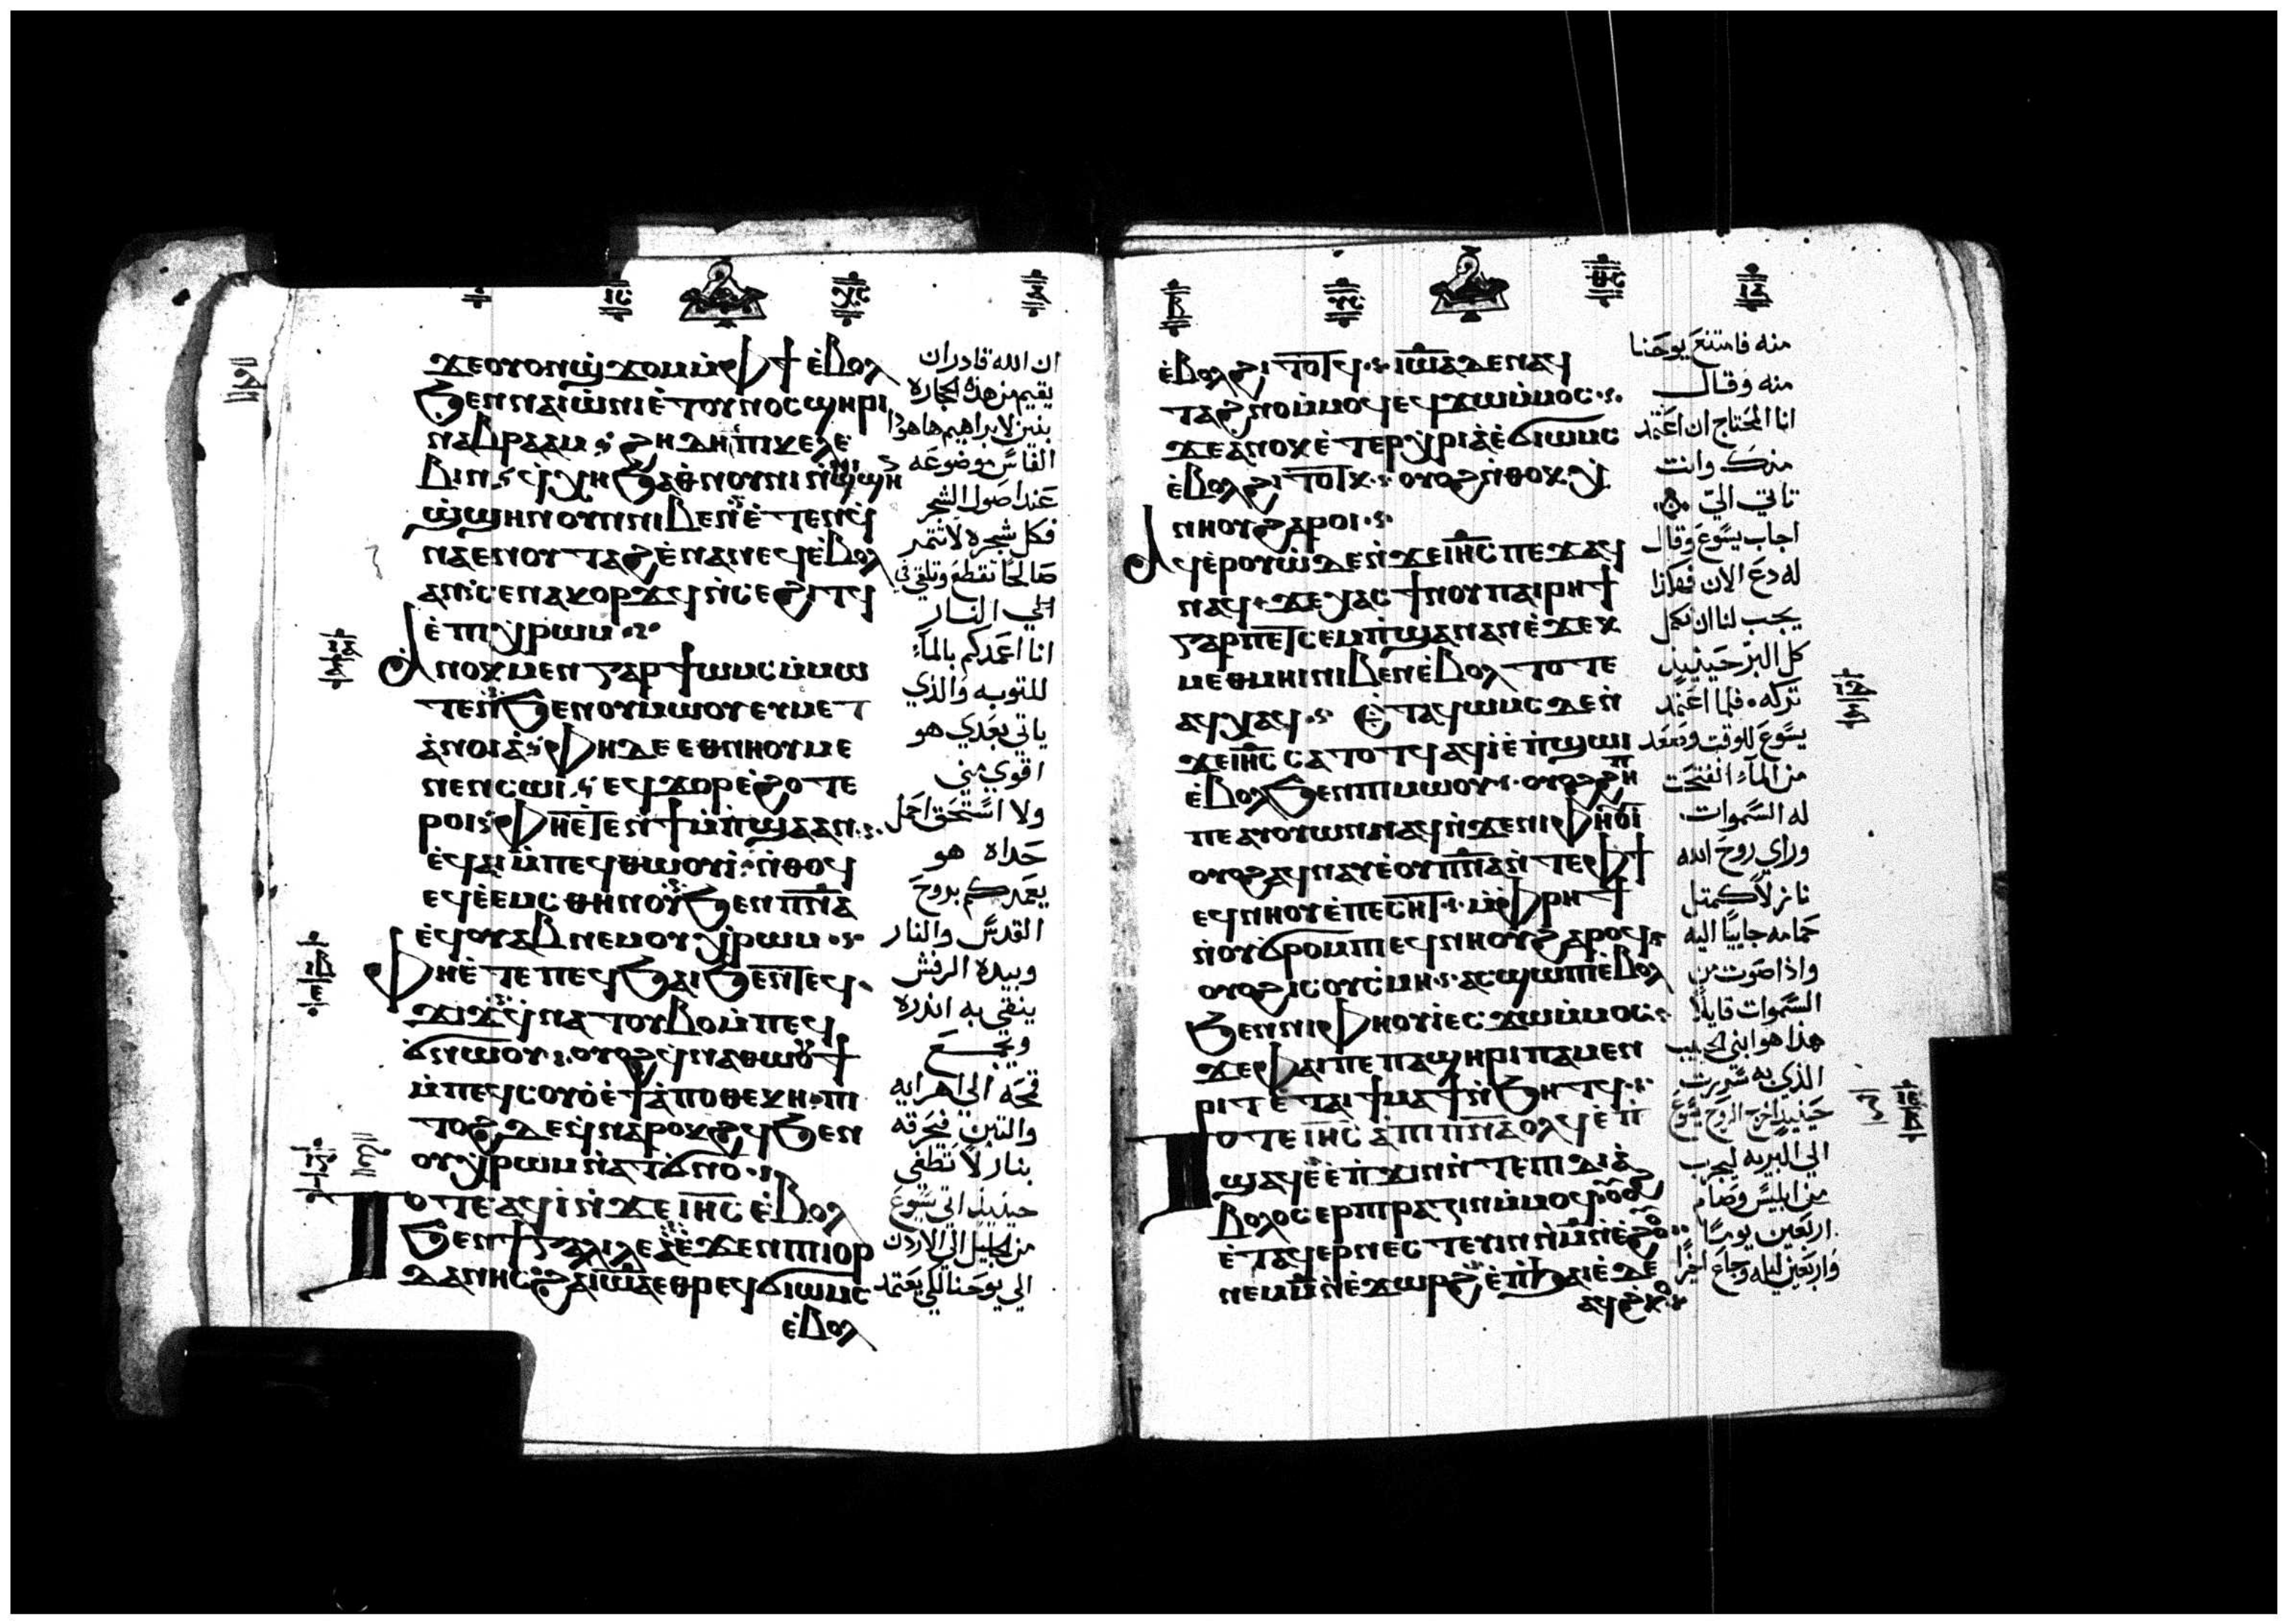 ϫⲉⲟⲩⲟⲛϣϫⲟⲙⲙ̀ⲫϯ ⲉ̀ⲃⲟⲗ
ϧⲉⲛⲛⲁⲓⲱ̀ⲛⲓⲉ̀ⲧⲟⲩⲛⲟⲥϣⲏⲣⲓ
ⲛⲁⲃⲣⲁⲁⲙ
ⲛⲁⲉⲛⲟⲩⲧⲁϩⲉ̀ⲛⲁⲛⲉϥⲉ̀ⲃⲟⲗ
ⲁⲛ ⲥⲉⲛⲁⲕⲟⲣϫϥ ⲛ̀ⲥⲉϩⲓⲧϥ
ⲉ̀ⲡⲓⲭⲣⲱⲙ
ⲁⲛⲟⲕⲙⲉⲛⲅⲁⲣϯⲱⲙⲥⲙ̀ⲙⲱ
ⲧⲉⲛϧⲉⲛⲟⲩⲙⲱⲟⲩⲉⲩⲙⲉⲧ
ⲁ̀ⲛⲟⲓⲁ̀ ⲫⲏⲇⲉ ⲉⲑⲛⲏⲟⲩⲙⲉ
ⲛⲉⲛⲥⲱⲓ ⲉϥϫⲟⲣⲉ̀ϩⲟⲧⲉ
ⲣⲟⲓ ⲫⲏⲉ̀ⲧⲉⲛϯⲙ̀ⲡϣⲁⲁⲛ
ⲉ̀ϥⲁⲓⲙ̀ⲡⲉϥⲑⲱⲟⲩⲓ̀ ⲛ̀ⲑⲟϥ
ⲉϥⲉ̀ⲉⲙⲥ ⲑⲏⲛⲟⲩϧⲉⲛⲡⲛ̅ⲁ
ⲉϥⲟⲩⲁⲃⲛⲉⲙⲟⲩⲭⲣⲱⲙ
ⲫⲏⲉ̀ⲧⲉⲡⲉϥϧⲁⲓϧⲉⲛⲧⲉϥ
ϫⲓϫ ϥⲛⲁⲧⲟⲩⲃⲟⲙ̀ⲡⲉϥ
ϭⲛⲱⲟⲩ ⲟⲩⲟϩϥⲛⲁⲑⲱⲟⲩϯ
ⲙ̀ⲡⲉϥⲥⲟⲩⲟ̀ⲉ̀ϯⲁ̀ⲡⲟⲑⲉⲕⲏ ⲡⲓ
ⲧⲟϩ ⲇⲉϥⲛⲁⲣⲟⲕϩϥϧⲉⲛ
ⲟⲩⲭⲣⲱⲙⲛ̀ⲁⲧϭⲛⲟ
ⲧⲟⲧⲉⲁϥⲓ̀ⲛ̀ϫⲉ ⲓⲏ̅ⲥ ⲉ̀ⲃⲟⲗ
ϧⲉⲛϯⲅⲁⲗⲓⲗⲉⲁ̀ⲉ̀ϫⲉⲛⲡⲓⲓⲟⲣ
ⲇⲁⲛⲏⲥ ϩⲁⲓⲱ̅ⲁⲉⲑⲣⲉϥϭⲓⲱⲙⲥ
ⲉ̀ⲃⲟⲗ
ان الله قادر ان
يقيم من هذه الحجاره
بنين لابراهيم ها هوذا
الفاس موضوعه
عند اصول الشجر
فكل شجره لا تثمر
صالحا تقطع وتلقي في
الي النار
انا اعمدكم بالماء
للتوبه والذي
ياتي بعدي هو
اقوي مني
ولا استحق احمل
حداه هو
يعمدكم بروح
القدس والنار
وبيده الرفش
ينقي به اندره
ويجمع
قمحه الي اهرايه
والتبن فيحرقه
بنار لا تطفي
حينيذ اتي يسوع
من الجليل الي الاردن
الي يوحنا لكي يعتمد
ⲉ̀ⲃⲟⲗϩⲓⲧⲟⲧϥ ⲓⲱ̅ⲁⲇⲉⲛⲁϥ
ⲧⲁϩⲛⲟⲙ̀ⲙⲟϥⲉϥϫⲱⲙ̀ⲙⲟⲥ
ϫⲉⲁⲛⲟⲕⲉ̀ⲧⲉⲣⲭⲣⲓⲁ̀ⲉ̀ϭⲓⲱⲙⲥ
ⲉ̀ⲃⲟⲗϩⲓⲧⲟⲧⲕ ⲟⲩⲟϩⲛⲑⲟⲕⲭ
ⲛⲏⲟⲩϩⲁⲣⲟⲓ
ⲁϥⲉ̀ⲣⲟⲩⲱ̀ⲇⲉⲛ̀ϫⲉⲓⲏ̅ⲥⲡⲉϫⲁϥ
ⲛⲁϥ ϫⲉⲭⲁⲥϯⲛⲟⲩⲡⲁⲓⲣⲏϯ
ⲅⲁⲣⲡⲉⲧⲥⲉⲙ̀ⲡϣⲁⲛⲁⲛⲉ̀ϫⲉⲕ
ⲙⲉⲑⲙⲏⲓⲛⲓⲃⲉⲛⲉ̀ⲃⲟⲗ ⲧⲟⲧⲉ
ⲁϥⲭⲁϥ ⲉ̀ⲧⲁϥⲱⲙⲥⲇⲉⲛ̀
ϫⲉⲓⲏ̅ⲥⲥⲁⲧⲟⲧϥⲁϥⲓ̀ⲉ̀ⲡ̀ϣⲱⲓ
ⲉ̀ⲃⲟⲗϧⲉⲛⲡⲓⲙⲱⲟⲩ ⲟⲩⲟϩϩⲏ
ⲡⲡⲉⲁⲩⲟⲩⲱⲛⲛⲁϥⲛ̀ϫⲉⲛⲓⲫⲏⲟⲩⲓ̀
ⲟⲩⲟϩⲁϥⲛⲁⲩⲉ̀ⲟⲩⲡⲛ̅ⲁⲛ̀ⲧⲉⲫϯ
ⲉϥⲛⲏⲟⲩⲉ̀ⲡⲉⲥⲏⲧ ⲙ̀ⲫⲣⲏϯ
ⲛ̀ⲟⲩϭⲣⲟⲙⲡⲉϥⲛⲏⲟⲩϩⲁⲣⲟϥ
ⲟⲩⲟϩⲓⲥⲟⲩⲥⲙⲏ ⲁⲥϣⲱⲡⲓⲉ̀ⲃⲟⲗ
ϧⲉⲛⲛⲓⲫⲏⲟⲩⲓ̀ⲉⲥϫⲱⲙ̀ⲙⲟⲥ
ϫⲉⲫⲁⲓⲡⲉⲡⲁϣⲏⲣⲓⲡⲁⲙⲉⲛ
ⲣⲓⲧⲉ̀ⲧⲁⲓϯⲙⲁϯⲛ̀ϧⲏⲧϥ
ⲧⲟⲧⲉ ⲓⲏ̅ⲥ ⲁ̀ⲡⲓⲡⲛ̅ⲁⲟⲗϥⲉ̀ⲡⲓ̀
ϣⲁϥⲉ̀ⲉ̀ⲡϫⲓⲛⲛ̀ⲧⲉⲡⲓⲇⲓⲁ̀
ⲃⲟⲗⲟⲥⲉⲣⲡⲓⲣⲁⲍⲓⲛⲙ̀ⲙⲟϥ
منه فامتنع يوحنا
منه وقال
انا المحتاج ان اعتمد
منك وانت
تاتي الي
اجاب يسوع وقال
له دع الان فهكذا
يجب لنا ان نكمل
كل البر حينيذ
تركه فلما اعتمد
يسوع للوقت وصعد
من الماء انفتحت
له السموات
وراي روح الله
نازلا كمثل
حمامه جاييا اليه
واذا صوت من
السموات قايلا
هذا هو ابني الحبيب
الذي به سررت
حينيذ اخرج الروح يسوع
الي البريه ليجرب
من ابليس وصام
اربعين يوما
واربعين ليله وجاع اخيرا